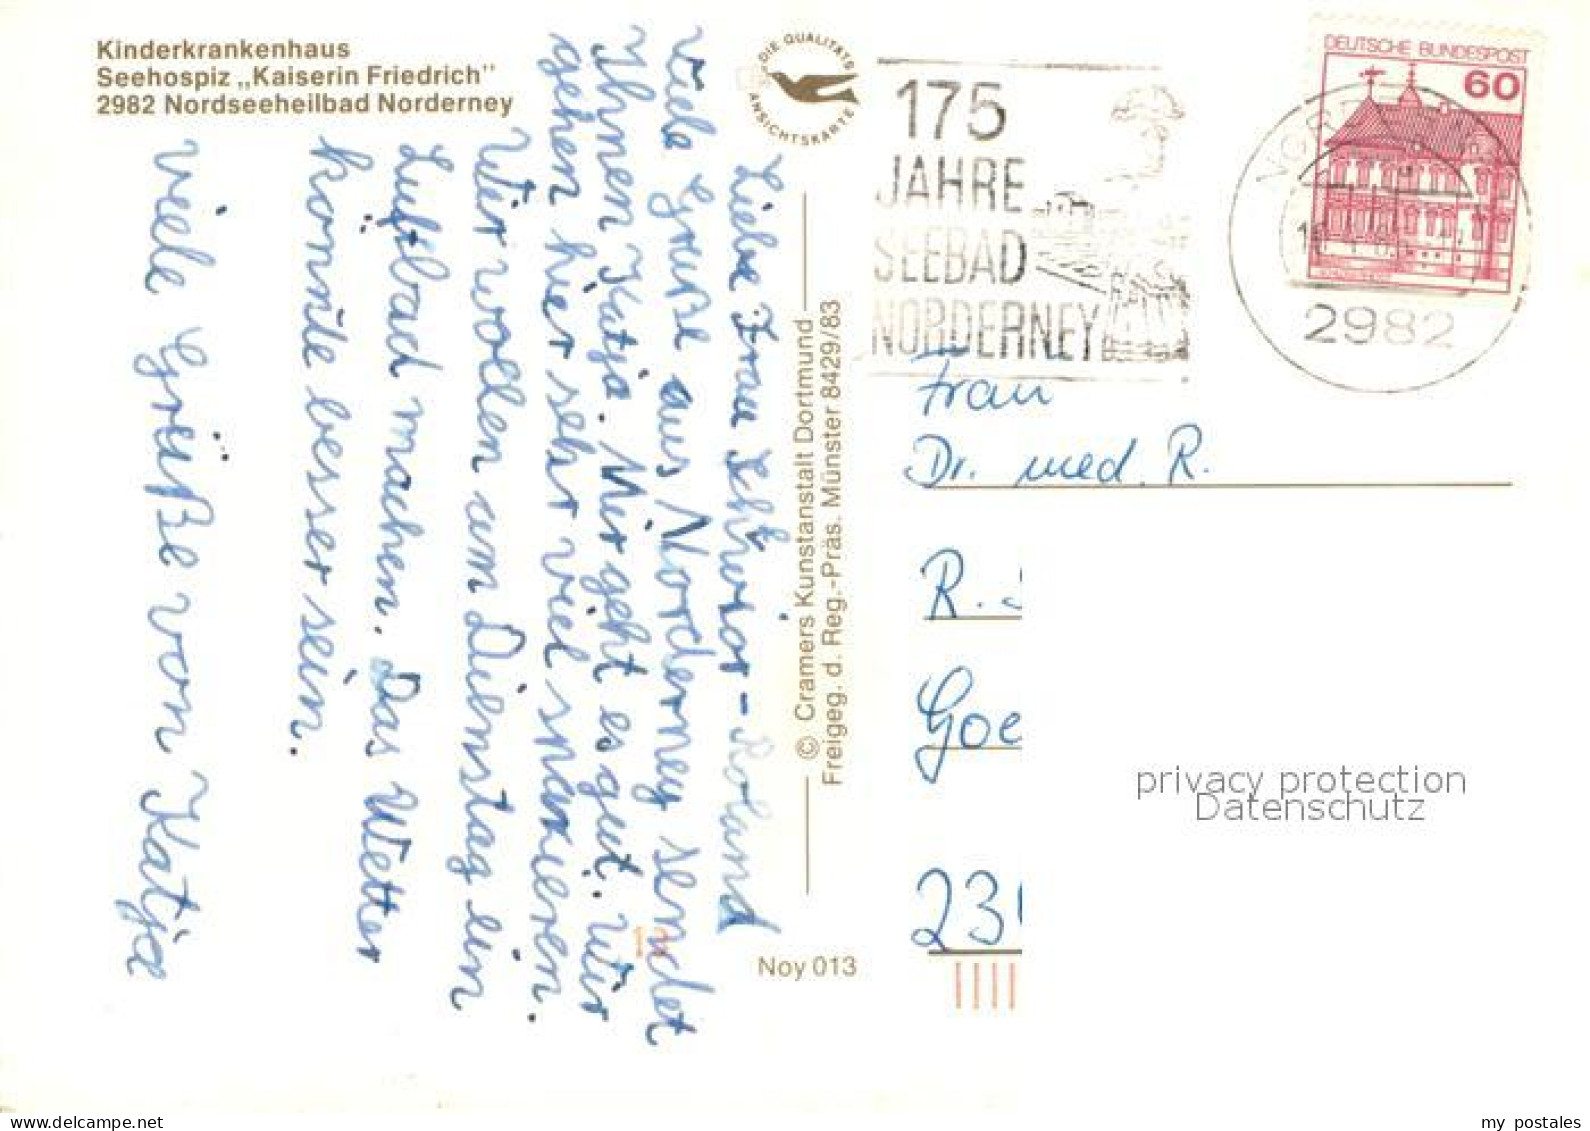 Kinderkrankenhaus
Seehospiz „Kaiserin Friedrich"
2982 Nordseeheilbad Norderney
DIE QUALITÄTS
ANSICHTSKARTE
Liebe Frau Schwior-Roland
viele Grüße aus Norderney sendet
Ihnen Katja. Mir geht es gut. Wir
gehen hier sehr viel spazieren.
Wir wollen am Dienstag ein
Luftbad machen. Das Wetter
könnte besser sein.
Viele Grüße von Katja
© Cramers Kunstanstalt Dortmund
Freigeg. d. Reg.-Präs. Münster 8429/83
Noy 013
175
JAHRE
SEEBAD
NORDERNEY
DEUTSCHE BUNDESPOST
60
2982
Frau
Dr. med. R.
R.
Goe
23
privacy protection
Datenschutz
my postales